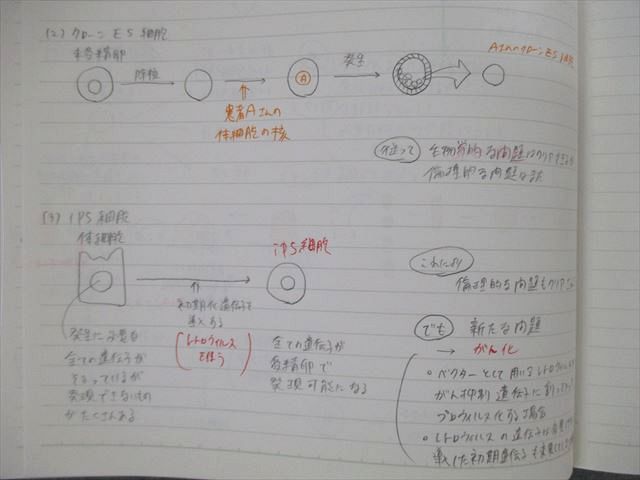 (2) クローンES細胞
未受精卵
除核
患者Aさんの
体細胞の核
A
発生
AさんのクローンES細胞
従って
生物学的な問題はクリアできるが
倫理的な問題は
(3) iPS細胞
体細胞
初期化遺伝子を
導入する
(レトロウイルス
を使う)
iPS細胞
発生に必要な
全ての遺伝子が
そろっているが
発現できないもの
がたくさんある
全ての遺伝子が
受精卵で
発現可能になる
これにより
倫理的な問題もクリア
でも
新たな問題
→ がん化
○ ベクターとして用いるレトロウイルス
がん抑制遺伝子に割って
プロウイルス化する場合
○ レトロウイルスの遺伝子は
導入した初期遺伝子も